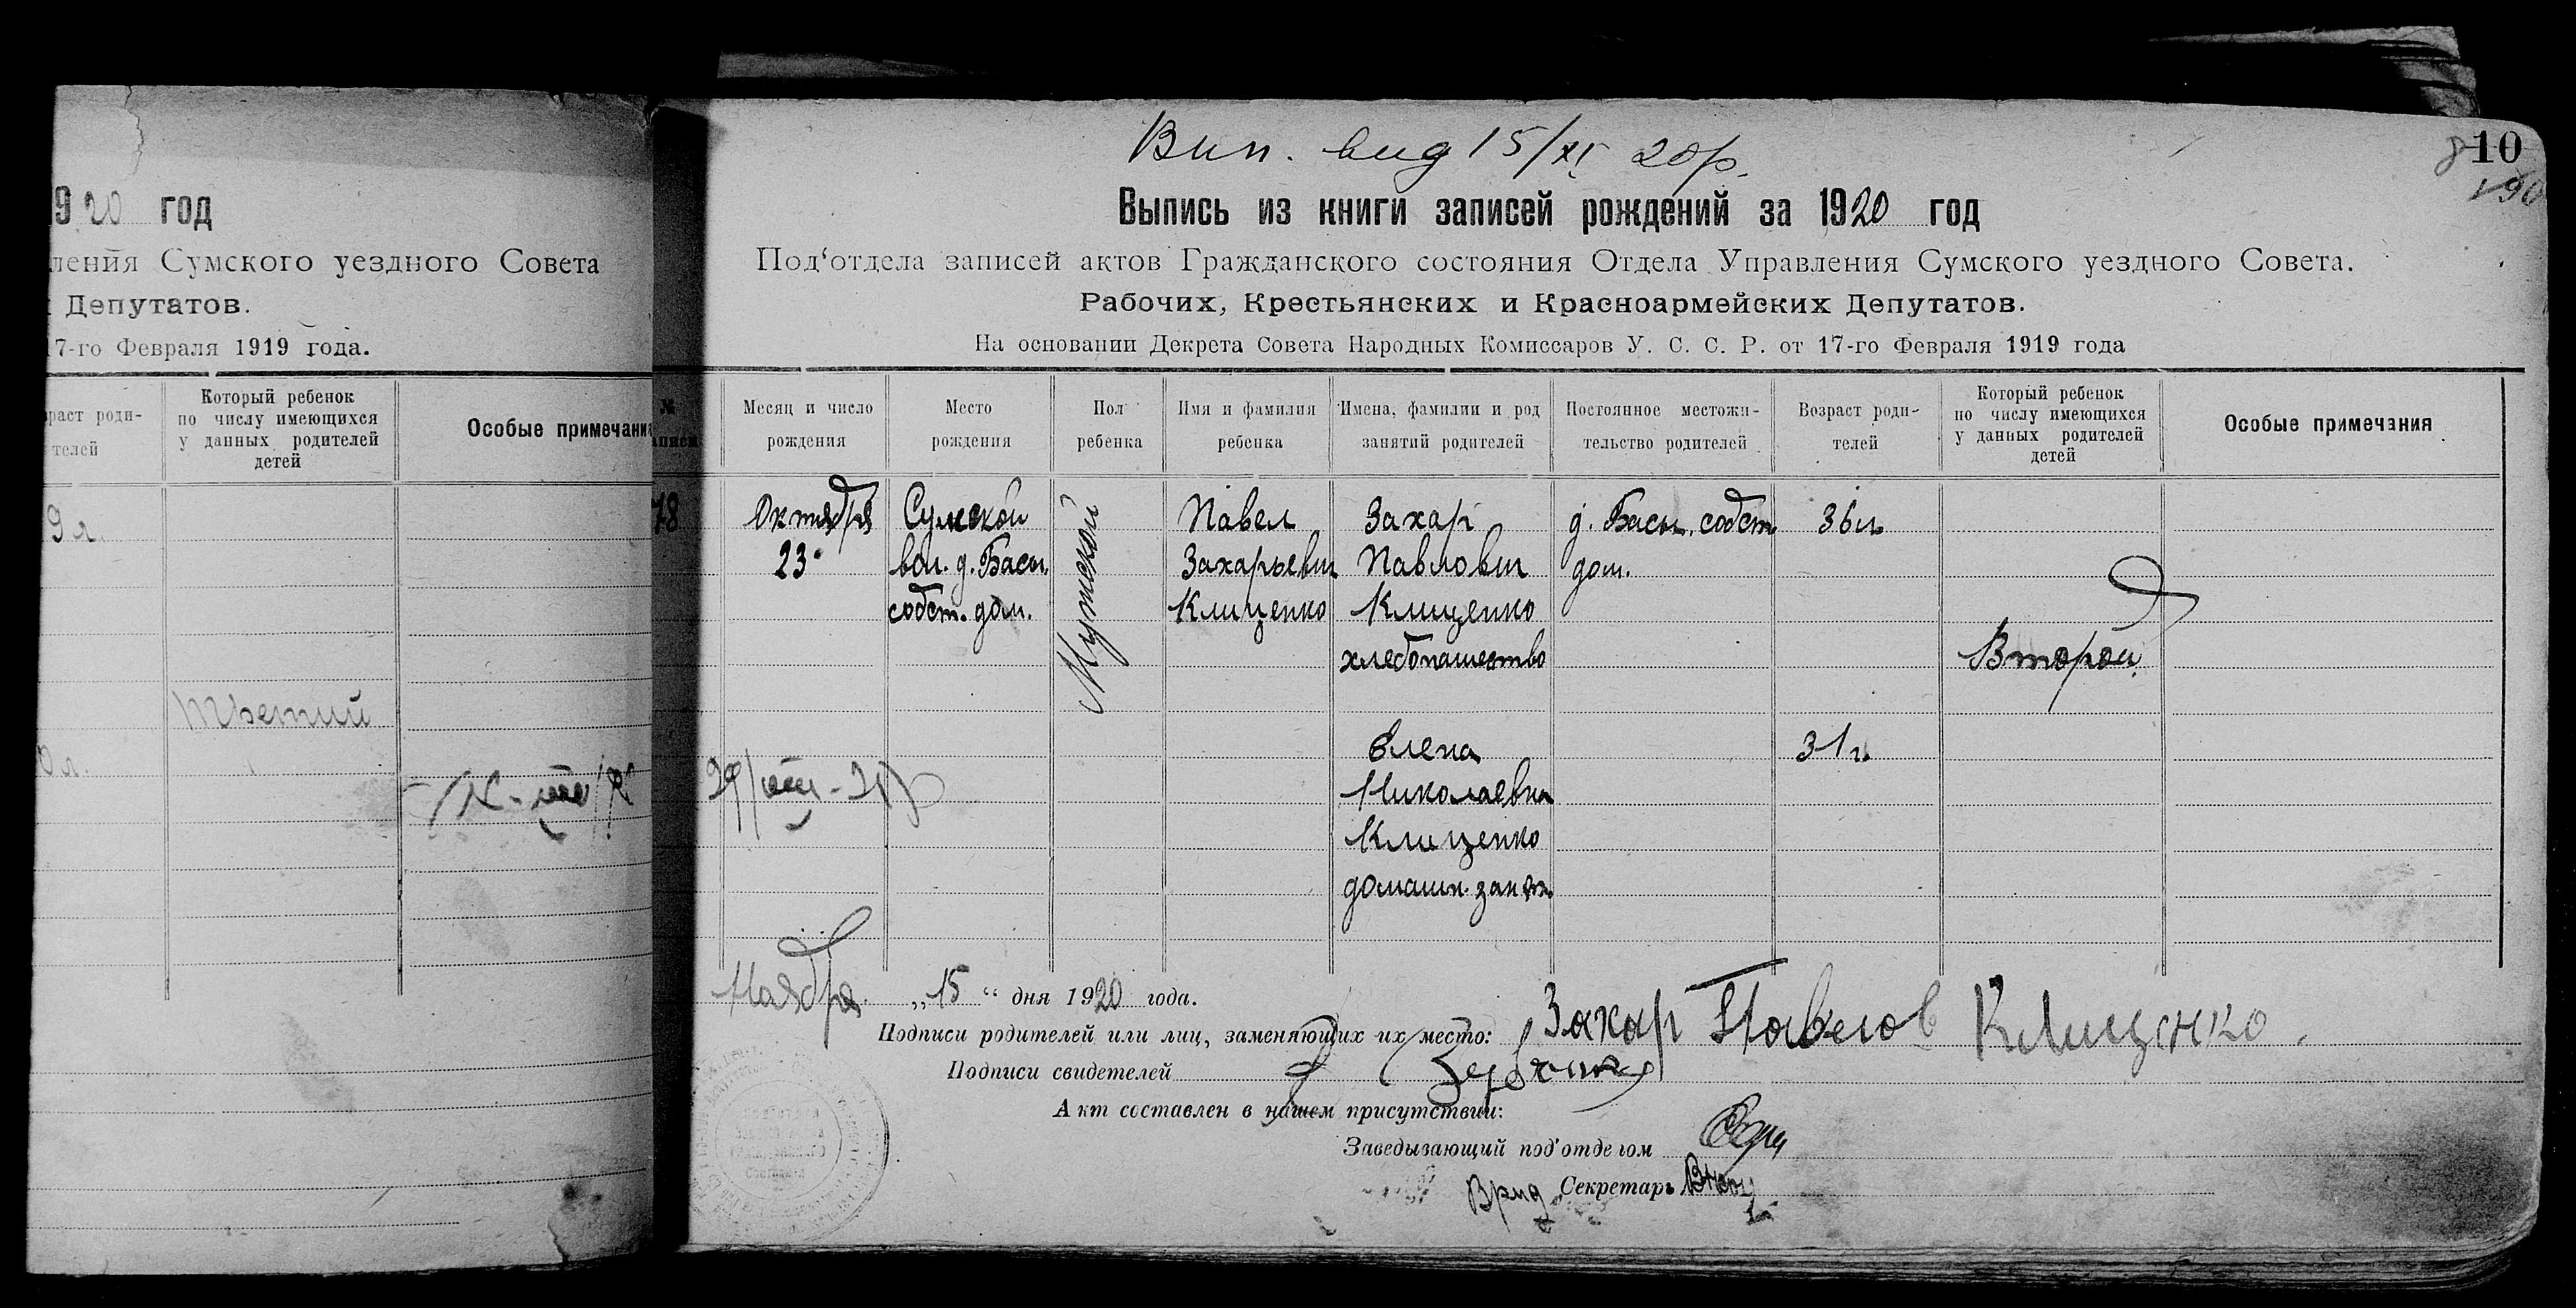 920 год
ления Сумского уездного Совета
Депутатов.
17-го Февраля 1919 года.
раст роди-
телей
Который ребенок
по числу имеющихся
у данных родителей
детей
Особые примечания
9 л.
Третий
0 л.
Вип. вид 15/XI 20р.
10
Выпись из книги записей рождений за 1920 год
Под'отдела записей актов Гражданского состояния Отдела Управления Сумского уездного Совета.
Рабочих, Крестьянских и Красноармейских Депутатов.
На основании Декрета Совета Народных Комиссаров У. С. С. Р. от 17-го Февраля 1919 года
№
записи
Месяц и число
рождения
Место
рождения
Пол
ребенка
Имя и фамилия
ребенка
Имена, фамилии и род
занятий родителей
Постоянное местожи-
тельство родителей
Возраст роди-
телей
Который ребенок
по числу имеющихся
у данных родителей
детей
Особые примечания
78
Октября
23
Сумской
вол. д. Басы.
собст. дом.
Мужской
Павел
Захарьевич
Клищенко
Захар
Павлович
Клищенко
хлебопашество
Елена
Николаевна
Клищенко
домашн. занят.
д. Басы, собст.
дом.
36 л.
31 г.
Второй
Ноября „15“ дня 1920 года.
Подписи родителей или лиц, заменяющих их место: Захар Павлов Клищенко.
Подписи свидетелей
Акт составлен в нашем присутствии:
Заведывающий под'отделом
Врид. Секретарь